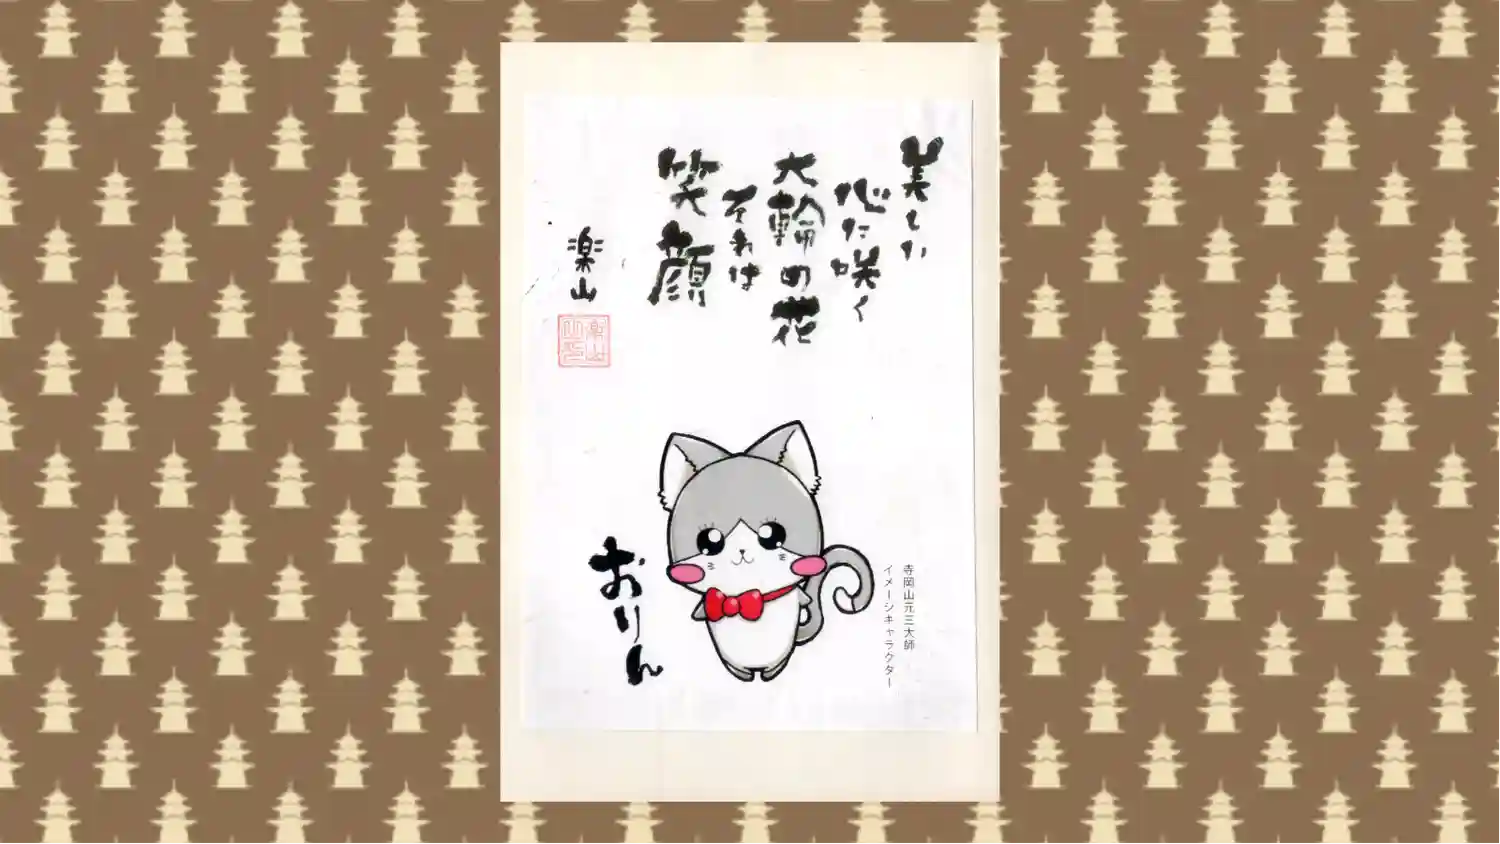 美しい
心に咲く
大輪の花
それは
笑顔
楽山
おりん
寺岡山元三大師
イメージキャラクター